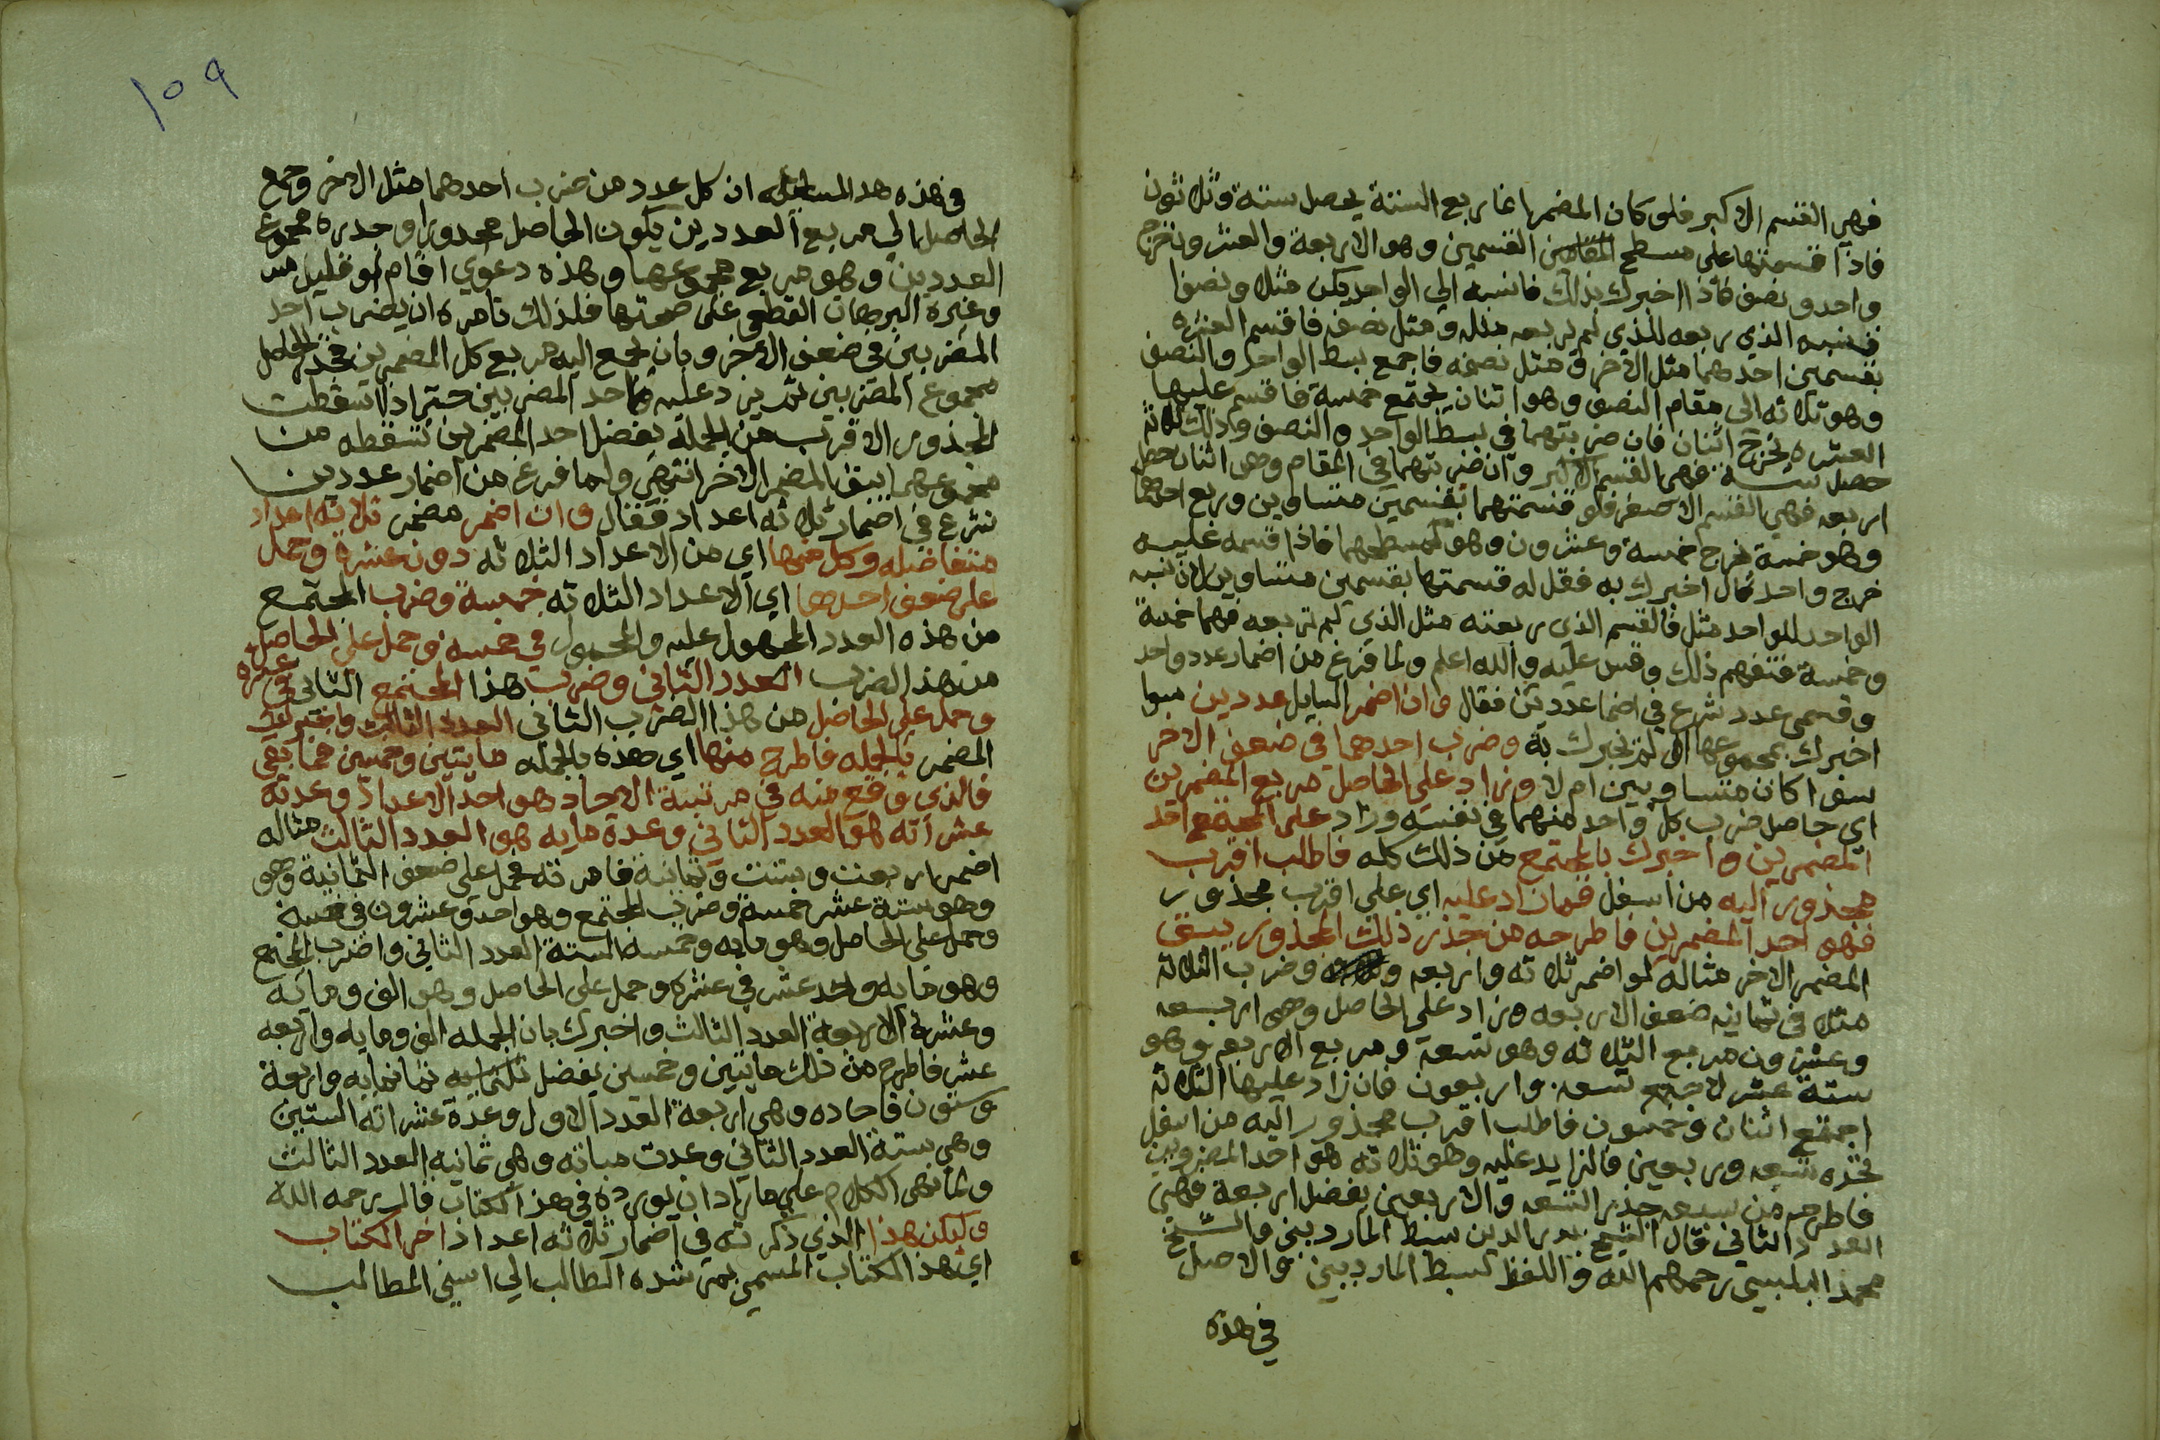 فهي القسم الاكبر فلو كان المضمر اغا ربع الستة يحصل ستة وثلاثون
فاذا قسمتها على مسطح القسمين وهو الاربعة والعشرون خرج
واحد ونصف فاذا اخبرك بذلك فانسبه الي الواحد يكن مثلا ونصفا
فنسبه الذي ربعه للذي لم يربعه مثله ومثل نصفه فاقسم العشره
بقسمين احدهما مثل الاخر ومثل نصفه فاجمع بسط الواحد والنصف
وهو ثلاثه الى مقام النصف وهو اثنان يجتمع خمسة فاقسم عليها
العشره يخرج اثنان فان ضربتهما في بسط الواحد والنصف وذلك ثلاثة
حصل ستة فهي القسم الاكبر وان ضربتهما في المقام وهي اثنان حصل
اربعه فهي القسم الاصغر فلو قسمتهما بقسمين متساويين وربع احدهما
وهو خمسة خرج خمسة وعشرون وهو كمسطحهما فاذا قسمه عليه
خرج واحد فاذا اخبرك به فقل له قسمتها بقسمين متساويين لان نسبه
الواحد للواحد مثل فالقسم الذي ربعته مثل الذي لم تربعه فهما خمسة
وخمسة فتفهم ذلك وقس عليه والله اعلم ولما فرغ من اضمار عدد واحد
وقسمي عدد شرع في اضمار عددين فقال وان اضمر السايل عددين سوا
اخبرك بمجموعها او لم يخبرك به وضرب احدهما في ضعف الاخر
سوا كان متساويين ام لا وزاد على الحاصل مربع المضمرين
اي حاصل ضرب كل واحد منهما في نفسه وزاد على المجتمع احد
المضمرين واخبرك بالمجتمع من ذلك كله فاطلب اقرب
مجذور اليه من اسفل فما زاد عليه اي علي اقرب مجذور
فهو احد المضمرين فاطرحه من جذر ذلك المجذور يبقى
المضمر الاخر مثاله لو اضمر ثلاثه واربعه وضرب الثلاثة
مثلا في ثمانيه ضعف الاربعه وزاد على الحاصل وهي اربعه
وعشرون مربع الثلاثه وهو تسعة ومربع الاربعه وهو
ستة عشر لاجتمع تسعه واربعون فان زاد عليها الثلاثة
اجتمع اثنان وخمسون فاطلب اقرب مجذور اليه من اسفل
تجده تسعه واربعين فالزايد عليه وهو ثلاثه هو احد المضروبين
فاطرحه من سبعه جذر التسعه والاربعين يفضل اربعة فهي
العدد الثاني قال الشيخ بدر الدين سبط المارديني والشيخ
محمد البلبيسي رحمهم الله واللفظ لسبط المارديني والاصل
في هذه
١٠٩
في هذه المسئله ان كل عدد من ضرب احدهما مثل الاخر وجمع
الحاصل الي مربع العددين يكون الحاصل مجذورا وجذره مجموع
العددين وهو مربع مجموعهما وهذه دعوي اقام اوقليدس
وغيره البرهان القطعي على صحتها فلذلك نامره ان يضرب احد
المضمرين في ضعف الاخر وبان يجمع اليه مربع كل المضمرين فجذر الحاصل
مجموع المضمرين ثم يزد عليه احد المضمرين حتى اذا اسقطت
المجذور الاقرب من الجملة يفضل احد المضمرين نسقطه من
مجموعهما يبقى المضمر الاخر انتهي ولما فرغ من اضمار عددين
شرع في اضمار ثلاثه اعداد فقال وان اضمر مضمر ثلاثه اعداد
متفاضله وكل منها اي من الاعداد الثلاثه دون عشرة وحمل
على ضعف احدها اي الاعداد الثلاثه خمسة وضرب المجتمع
من هذه العدد المحمول عليه والمحمول في خمسه وحمل على الحاصل
من هذا الضرب العدد الثاني وضرب هذا المجتمع الثاني في عشره
وحمل علي الحاصل من هذا الضرب الثاني العدد الثالث واخبرك
المضمر بالجمله فاطرح منها اي هذه بالجمله مايتين وخمسين فما بقي
فالذي وقع منه في مرتبة الاحاد هو احد الاعداد وعدة
عشراته هو العدد الثاني وعدة مايه هو العدد الثالث مثاله
اضمر اربعت وستت وثمانية فامرته تحمل على ضعف الثمانية وهو
وهو ستة عشر خمسة وضرب المجتمع وهو احد وعشرون في خمسه
وحمل على الحاصل وهو مايه وخمسه الستة العدد الثاني واضرب المجتمع
وهو مايه واحد عشر في عشره وحمل على الحاصل وهو الف ومايه
وعشرة الاربعة العدد الثالث واخبرك بان الجمله الف ومايه واربعه
عشر فاطرح من ذلك مايتين وخمسين يفضل ثمانمايه واربعة
وستون فاحاده وهي اربعة العدد الاول وعدة عشراته الستين
وهي ستة العدد الثاني وعدت مياته وهي ثمانيه العدد الثالث
ولما انهى الكلام على ما اراد ان يورده في هذا الكتاب قال رحمه الله
وليكن هذا الذي ذكرته في اضمار ثلاثه اعداد اخر الكتاب
اي هذا الكتاب المسمي بمرشده الطالب الي اسني المطالب